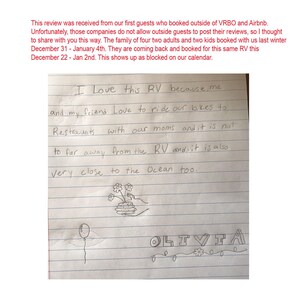 This review was received from our first guests who booked outside of VRBO and Airbnb.
Unfortunately, those companies do not allow outside guests to post their reviews, so I thought
to share with you this way. The family of four two adults and two kids booked with us last winter
December 31 - January 4th. They are coming back and booked for this same RV this
December 22 - Jan 2nd. This shows up as blocked on our calendar.
I Love this RV because me
and my friend Love to ride our bikes to
with our moms and it is not
to far away from the RV and it is also
very close to the Ocean too.
OLIVIA